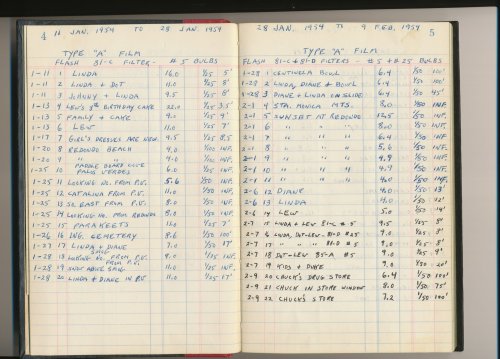 4 11 JAN. 1959 TO 28 JAN. 1959
TYPE "A" FILM
FLASH 81-C FILTER - #5 BULBS
1-11 1 LINDA 16.0 1/25 5'
1-11 2 LINDA + DOT 11.0 1/25 8'
1-11 3 + LINDA 9.5 1/25 8'
1-13 4 LEW'S 8th BIRTHDAY CAKE 22.0 1/25 3.5'
1-13 5 FAMILY + CAKE 9.0 1/25 9'
1-13 6 LEW 11.0 1/25 7'
1-17 7 GIRL'S DRESSES ARE NEW 9.5 1/25 8.5'
1-20 8 REDONDO BEACH 9.0 1/100 INF.
1-20 9 " " 4.0 1/100 INF.
1-25 10 PADDLE BOARD COVE PALOS VERDES 6.0 1/100 INF.
1-25 11 LOOKING NO. FROM P.V. 5.6 1/50 INF.
1-25 12 CATALINA FROM P.V. 11.0 1/50 INF.
1-25 13 SO. EAST FROM P.V. 8.0 1/50 INF.
1-25 14 LOOKING NO. FROM REDONDO 8.0 1/50 INF.
1-25 15 PARAKEETS 11.0 1/25 7'
1-26 16 ING. CEMETERY 8.6 1/50 100'
1-27 17 LINDA + DIANE 7.0 1/50 17'
1-28 18 LOOKING NO. FROM P.V. 9.0 1/25 INF.
1-28 19 SNOW ABOVE FROM P.V. 11.0 1/25 INF.
1-28 20 LINDA + DIANE IN P.V. 11.0 1/25 17'
28 JAN. 1959 TO 9 FEB. 1959 5
TYPE "A" FILM
FLASH 81-C + 81-D FILTERS - #5 + #25 BULBS
1-28 1 CENTINELA BOWL 6.4 1/50 100'
1-28 2 LINDA, DIANE + BOWL 6.4 1/50 100'
1-28 3 DIANE + LINDA ON SLIDE 6.4 1/50 45'
2-1 4 STA. MONICA MTS. 8.0 1/50 INF.
2-1 5 SUNSET AT REDONDO 12.5 1/50 INF.
2-1 6 " " " 8.0 1/50 INF.
2-1 7 " " " 6.4 1/50 INF.
2-1 8 " " " 5.6 1/50 INF.
2-1 9 " " " 4.9 1/50 INF.
2-1 10 " " " 4.9 1/50 INF.
2-1 11 " " " 4.0 1/50 INF.
2-6 12 DIANE 4.0 1/50 13'
2-6 13 LINDA 4.0 1/50 12'
2-6 14 LEW 5.0 1/50 14'
2-7 15 LINDA + LEW 81-C #5 9.5 1/25 8'
2-7 16 LINDA, DOT-LEW 81-D #25 9.0 1/25 9'
2-7 17 " " 81-D #5 9.0 1/25 8'
2-7 18 DOT-LEW 85-A #5 9.0 1/25 9'
2-7 19 KIDS + DUKE 9.0 1/50 20'
2-9 20 CHUCK'S DRUG STORE 6.4 1/50 100'
2-9 21 CHUCK IN STORE WINDOW 8.0 1/50 75'
2-9 22 CHUCK'S STORE 7.2 1/50 100'